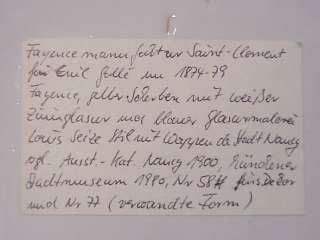 Fayencemanufaktur Saint-Clement
für Emil Gallé um 1874-79
Fayence, gelber Scherben mit weißer
Zinnglasur und blauer Glasurmalerei
Louis Seize Stil mit Wappen der Stadt Nancy
vgl. Ausst.-Kat. Nancy 1900, Münchener
Stadtmuseum 1980, Nr 58 fürs Dekor
und Nr 77 (verwandte Form)